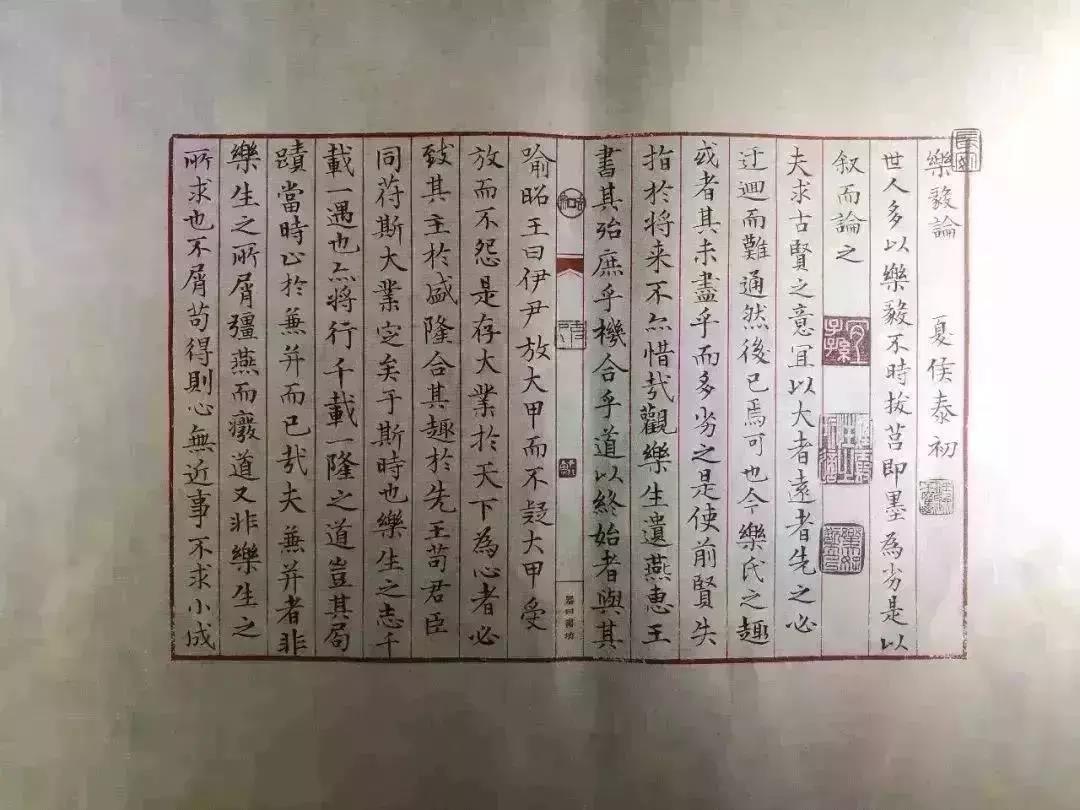 樂毅論 夏侯泰初
世人多以樂毅不時拔莒即墨為劣是以
叙而論之
夫求古賢之意宜以大者遠者先之必
迂迴而難通然後已焉可也今樂氏之趣
或者其未盡乎而多劣之是使前賢失
指於將来不亦惜哉觀樂生遺燕惠王
書其殆庶乎機合乎道以終始者與其
喻昭王曰伊尹放大甲而不疑大甲受
放而不怨是存大業於天下為心者必
致其主於盛隆合其趣於先王苟君臣
同苻斯大業定矣于斯時也樂生之志千
載一遇也亦將行千載一隆之道豈其局
蹟當時止於兼并而已哉夫兼并者非
樂生之所屑彊燕而癈道又非樂生之
所求也不屑苟得則心無近事不求小成